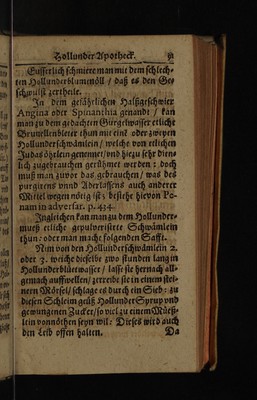 Hollunder Apotheck.
Eusserlich schmiere man mit dem schlech-
ten Hollunderblumenöll / daß es den Ge-
schwulst zertheile.
In dem gefährlichen Halßgeschwer
Angina oder Spinanthia genandt / kan
man zu dem gedachten Gürgelwasser etliche
Brunellenbleter thun mit eine oder zweyen
Hollunderschwämlein / welche von etlichen
Judas öhrlein genennet / vnd hierzu sehr dien-
lich zugebrauchen gerühmet werden: doch
muß man zuvor das gebrauchen / was des
purgirens vnnd Aderlassens auch anderer
Mittel wegen nötig ist: besiehe hievon Po-
nam in adversar. p. 434.
Ingleichen kan man zu dem Hollunder-
mueß etliche gepulverisirte Schwämlein
thun: oder man mache folgenden Safft.
Nem von den Hollunderschwämlein 2.
oder 3. weiche dieselbe zwo stunden lang in
Hollunderblütwasser / lasse sie hernach all-
gemach auffwellen / zerreibe sie in einem stei-
nern Mörsel / schlage es durch ein Sieb: zu
diesen Schleim geuß Hollunder Syrup vnd
gewungenen Zucker / so viel zu einem Müeß-
lein vonnöthen seyn wil: Dieses wird auch
den Leib offen halten.
Da